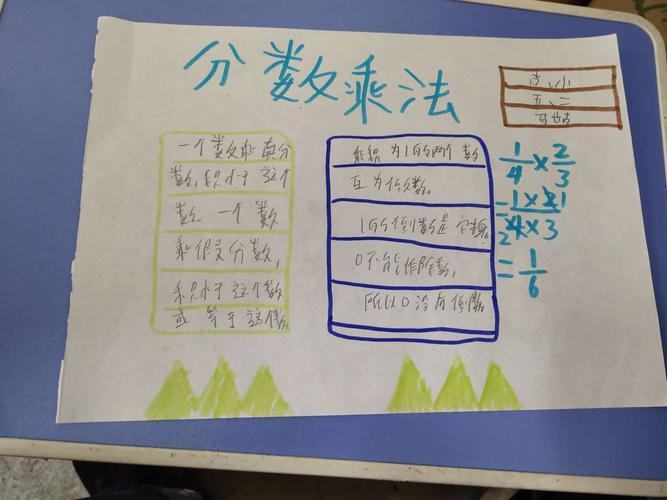 分数乘法
一个数乘真分
数,积小于这个
数。一个数
乘假分数,
积小于这个数
或等于这个数。
乘积为1的两个数
互为倒数。
1的倒数是它
0不能作除数,
所以0没有倒数
小
五、二
1/4×2/3
=1×2 1/4×3 2
=1/6